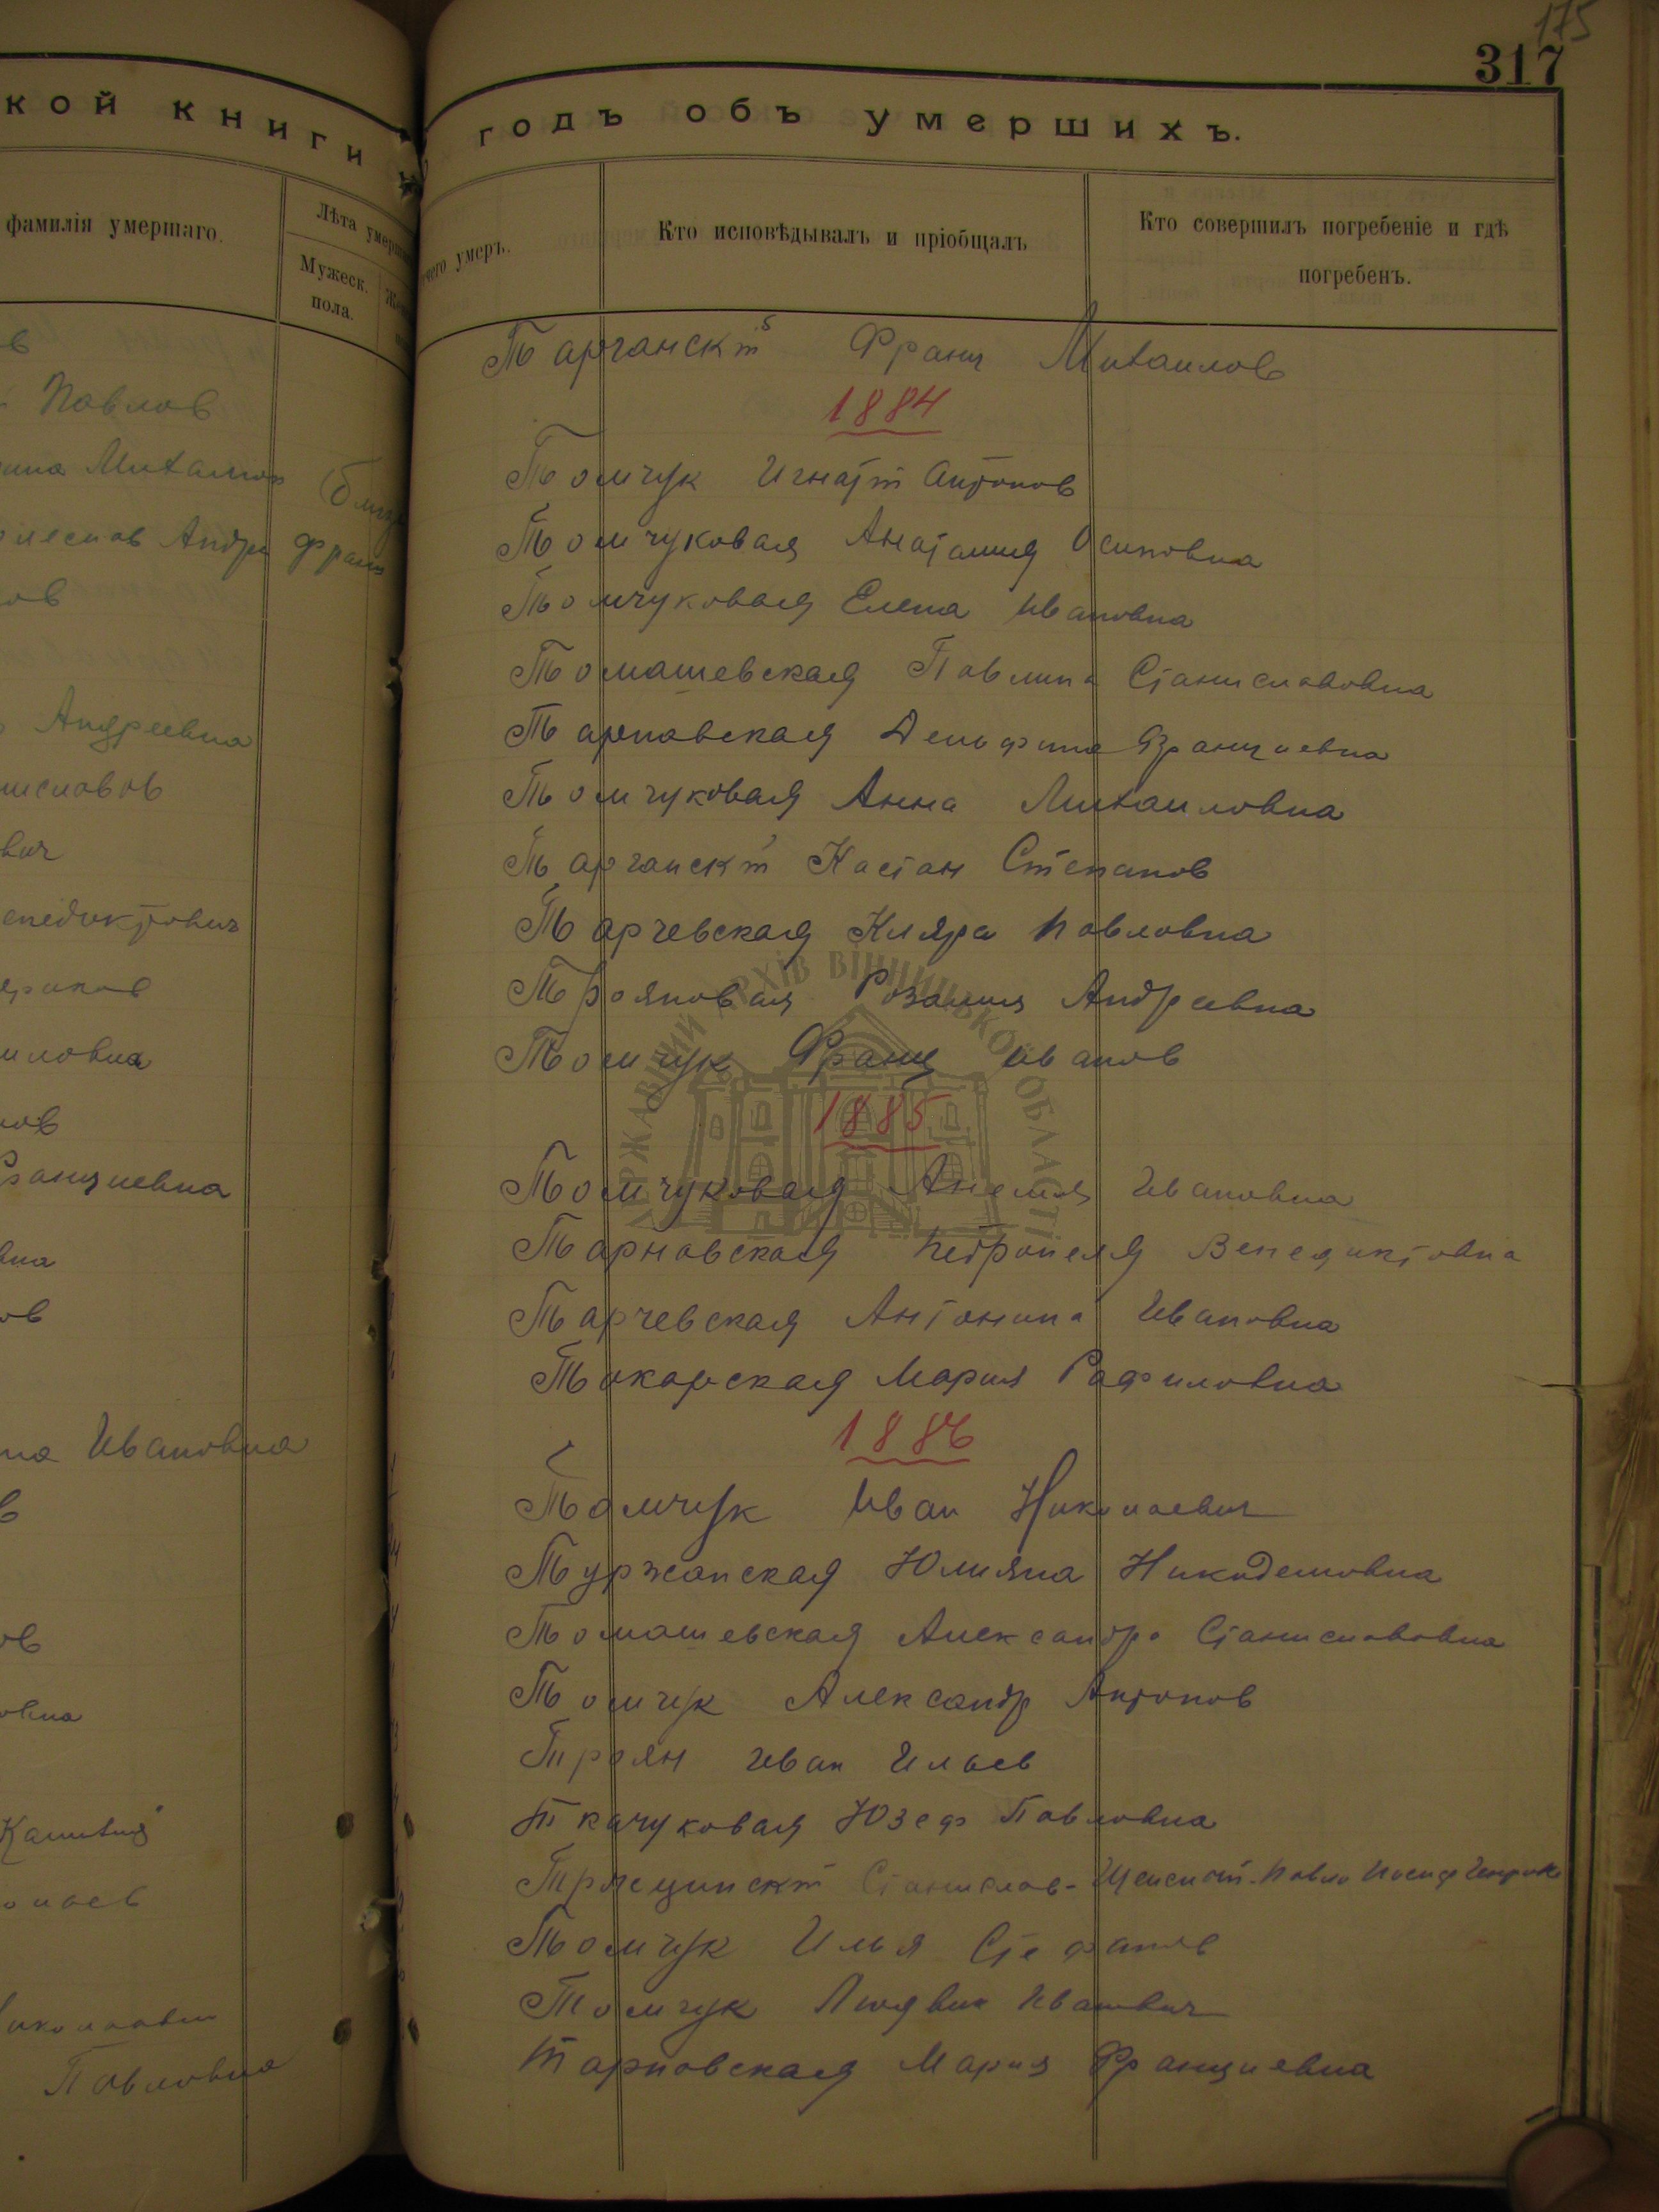 175
317
кой книги
годъ объ умершихъ.
фамилія умершаго.
Лѣта
Мужеск. пола.
чего умеръ.
Кто исповѣдывалъ и пріобщалъ
Кто совершилъ погребеніе и гдѣ погребенъ.
в
Павлов
Михаилов
Андрей Франц
ов
Андреевна
ниславов
вич
енедиктович
иловна
нов
Францишевна
вна
ов
на Ивановна
в
ов
овна
олаев
Павловна
Тарганскій Франц Михаилов
1884
Томчук Игнатій Антонов
Томчуковая Анатолия Осиповна
Томчуковая Елена Ивановна
Томашевская Павлина Станиславовна
Тарнавская Дельфина Францишевна
Томчуковая Анна Михаиловна
Тарганскій Кастан Степанов
Тарчевская Кляра Павловна
Трояновая Розалия Андреевна
Томчук Франц Иванов
1885
Томчуковая Анеля Ивановна
Тарнавская Петронеля Венедиктовна
Тарчевская Антонина Ивановна
Токарская Мария Рафиловна
1886
Томчук Иван Николаевич
Туржанская Юлияна Никодемовна
Томашевская Александра Станиславовна
Томчук Александр Антонов
Троян Иван Ильев
Ткачуковая Юзеф Павловна
Тржецинскій Станислав- Павло Иосиф
Томчук Илья Стефанов
Томчук Людвик Иванович
Тарновская Мария Францишевна
ДЕРЖАВНИЙ АРХІВ ВІННИЦЬКОЇ ОБЛАСТІ